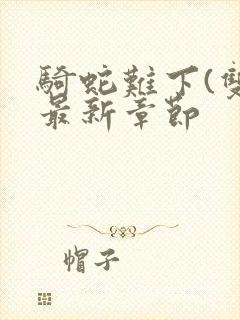 騎蛇難下(雙
最新章節
帽子